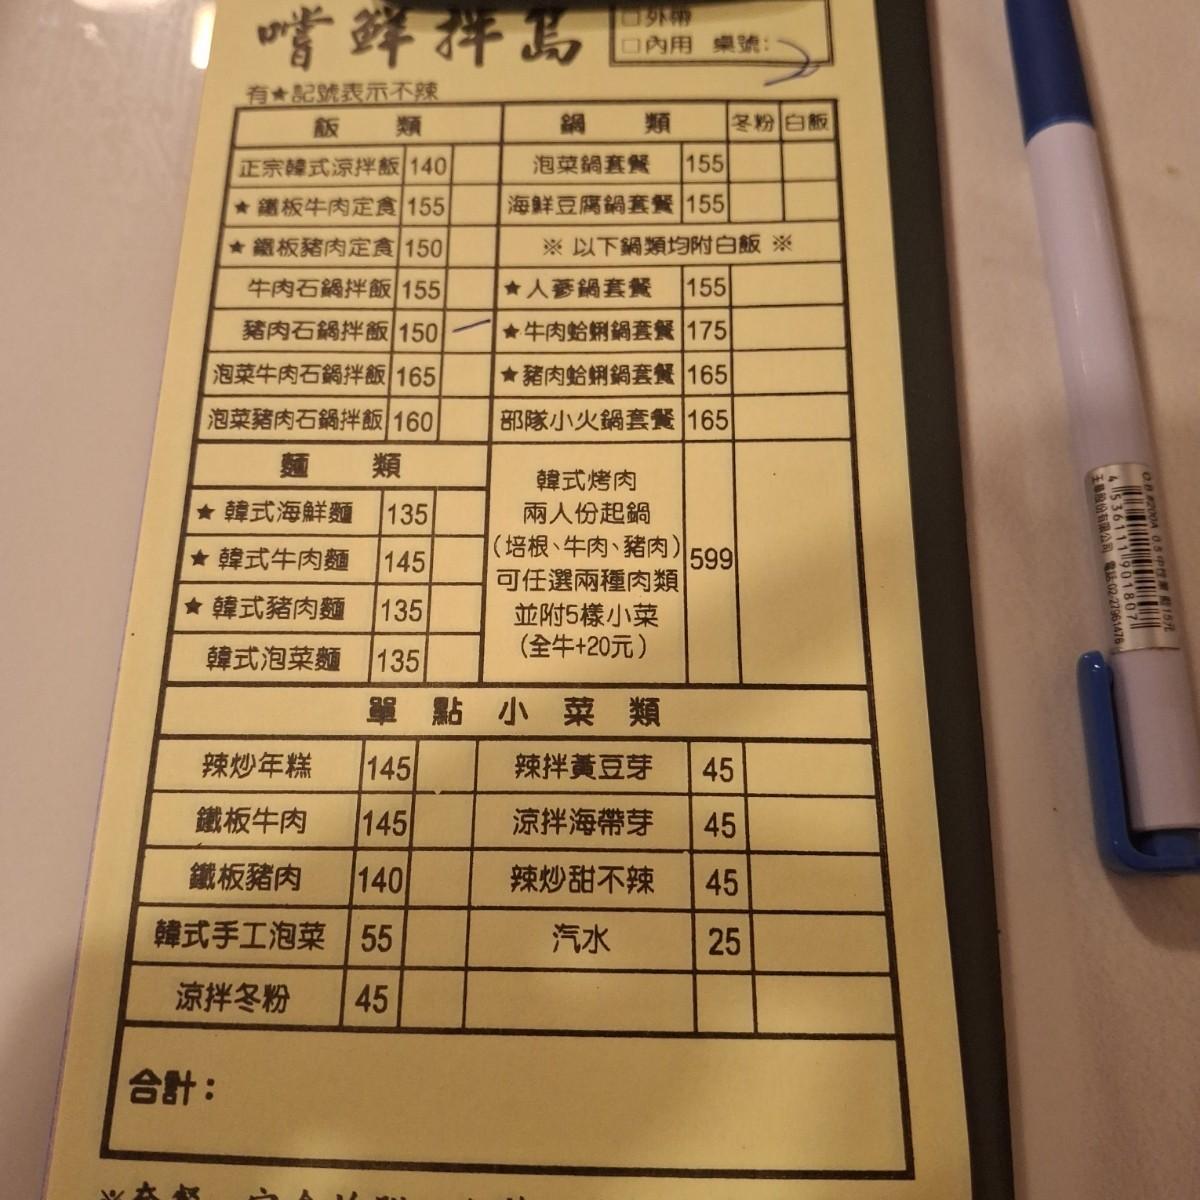 嚐鮮拌島
□外帶
□內用 桌號: 2
有★記號表示不辣
飯 類
正宗韓式涼拌飯 140
★ 鐵板牛肉定食 155
★ 鐵板豬肉定食 150
牛肉石鍋拌飯 155
豬肉石鍋拌飯 150 一
泡菜牛肉石鍋拌飯 165
泡菜豬肉石鍋拌飯 160
鍋 類 冬粉 白飯
泡菜鍋套餐 155
海鮮豆腐鍋套餐 155
※ 以下鍋類均附白飯 ※
★人蔘鍋套餐 155
★牛肉蛤蜊鍋套餐 175
★豬肉蛤蜊鍋套餐 165
部隊小火鍋套餐 165
麵 類
★ 韓式海鮮麵 135
★ 韓式牛肉麵 145
★ 韓式豬肉麵 135
韓式泡菜麵 135
韓式烤肉
兩人份起鍋
(培根、牛肉、豬肉) 599
可任選兩種肉類
並附5樣小菜
(全牛+20元)
單 點 小 菜 類
辣炒年糕 145 辣拌黃豆芽 45
鐵板牛肉 145 涼拌海帶芽 45
鐵板豬肉 140 辣炒甜不辣 45
韓式手工泡菜 55 汽水 25
涼拌冬粉 45
合計:
O.B #200A 0.5中性筆 藍15元
4 536111 901807
電話:02-27961476